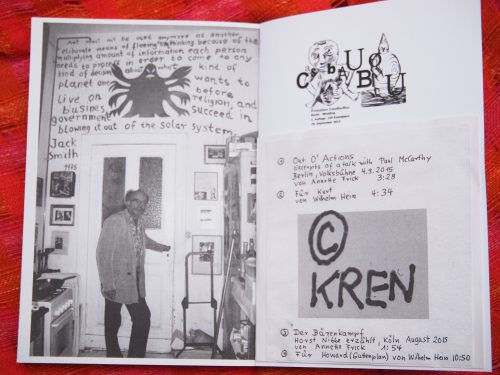 Art must not be used anymore as another
elaborate means of fleeing thinking because of the
multiplying amount of information each person
needs to process in order to come to any
kind of decision about what kind of
planet one wants to
live on before
business, religion, and
government succeed in
blowing it out of the solar system.
Jack
Smith
CабAUQ
UABUU
① Out O' Actions
Excerpts of a talk with Paul McCarthy
Berlin, Volksbühne 4.9.2015
von Annette Frick 3:28
② Für Kurt
von Wilhelm Hein 4:34
© KREN
③ Der Bärenkampf
Horst Nibbe erzählt, Köln August 2015
von Annette Frick 1:54
④ Für Howard (Guttenplan) von Wilhelm Hein 10:50